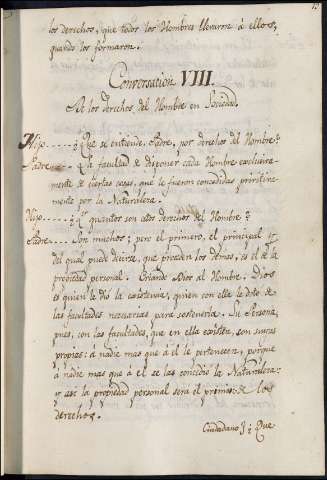 los derechos, que todos los Hombres llevaron á ellos,
quando los formaron.
Conversation VIII.
De los derechos del Hombre en Sociedad.
Hijo.....¿Que se entiende, Padre, por derechos del Hombre?
Padre....La facultad de disponer cada Hombre exclusiva-
mente de ciertas cosas, que le fueron concedidas privitiva-
mente por la Naturaleza.
Hijo.....¿Y quantos son estos derechos del Hombre?
Padre....Son muchos; pero el primero, el principal y
del qual puede decirse, que proceden los demas, es el de la
propiedad personal. Criando Dios al Hombre, Dios
es quien le dió la existencia, quien con ella le dotó de
las facultades necesarias para sostenerla. Su Persona,
pues, con las facultades, que en ella existen, son suyas
propias: á nadie mas que á él le pertenecen, porque
á nadie mas que á él se las concedió la Naturaleza:
y asi la propiedad personal será el primero de los
derechos.
Ciudadano J ¿Que